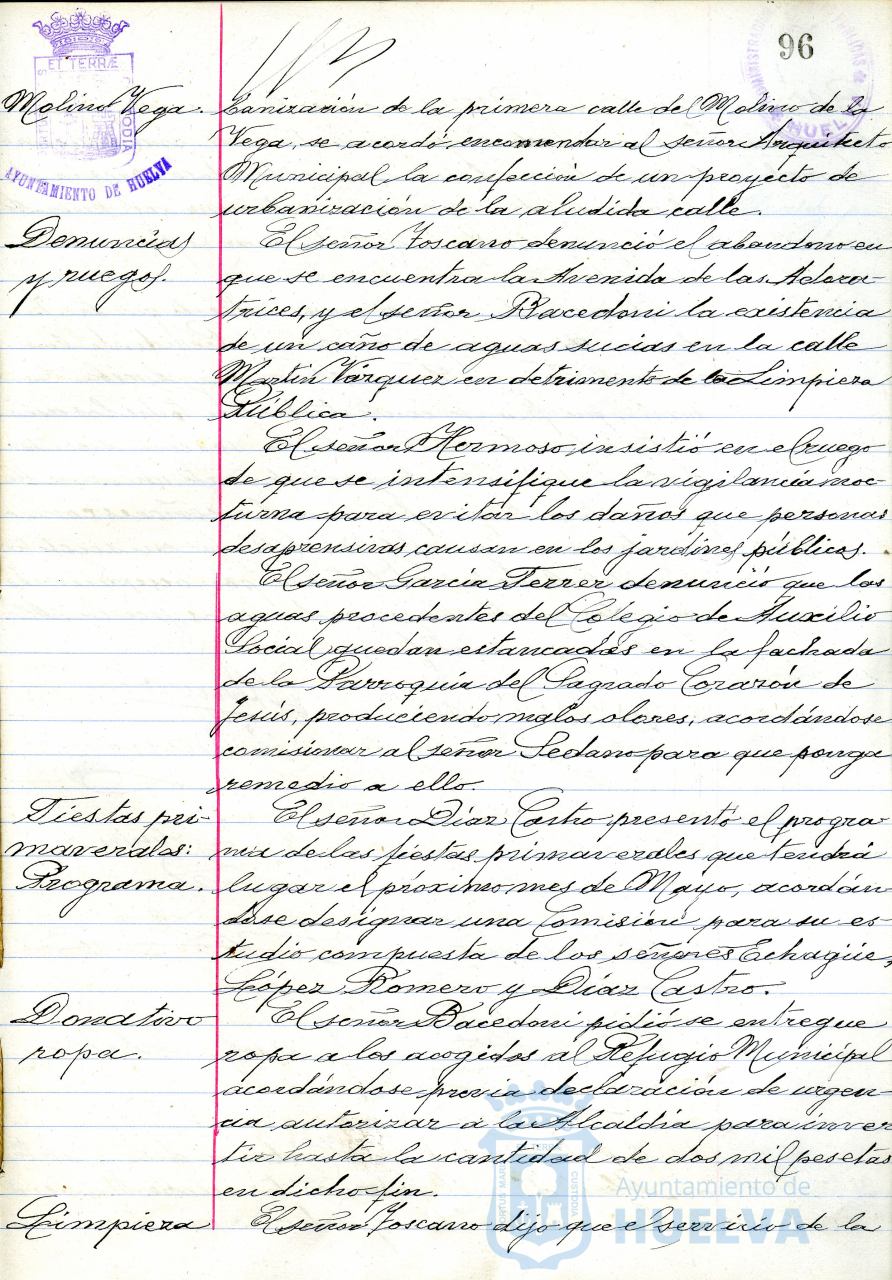 96
ET TERRÆ
AYUNTAMIENTO DE HUELVA
Molino Vega.
banización de la primera calle del Molino de la
Vega, se acordó encomendar al señor Arquitecto
Municipal la confección de un proyecto de
urbanización de la aludida calle.
Denuncias
y ruegos.
El señor Toscano denunció el abandono en
que se encuentra la Avenida de las Adora-
trices, y el señor Bacedoni la existencia
de un caño de aguas sucias en la calle
Martín Vázquez en detrimento de la Limpieza
Pública.
El señor Hermoso, insistió en el ruego
de que se intensifique la vigilancia noc-
turna para evitar los daños que personas
desaprensivas causan en los jardines públicos.
El señor García Ferrer denunció que las
aguas procedentes del Colegio de Auxilio
Social quedan estancadas en la fachada
de la Parroquia del Sagrado Corazón de
Jesús, produciendo malos olores, acordándose
comisionar al señor Sedano para que ponga
remedio a ello.
Fiestas pri-
maverales:
Programa.
El señor Díaz Castro presentó el progra-
ma de las fiestas primaverales que tendrá
lugar el próximo mes de Mayo, acordán-
dose designar una Comisión para su es-
tudio compuesta de los señores Echagüe,
López Romero y Díaz Castro.
Donativo
ropa.
El señor Bacedoni pidió se entregue
ropa a los acogidos al Refugio Municipal
acordándose previa declaración de urgen-
cia, autorizar a la Alcaldía para inver
tir hasta la cantidad de dos mil pesetas
en dicho fin.
Limpieza
El señor Toscano dijo que el servicio de la
Ayuntamiento de
HUELVA